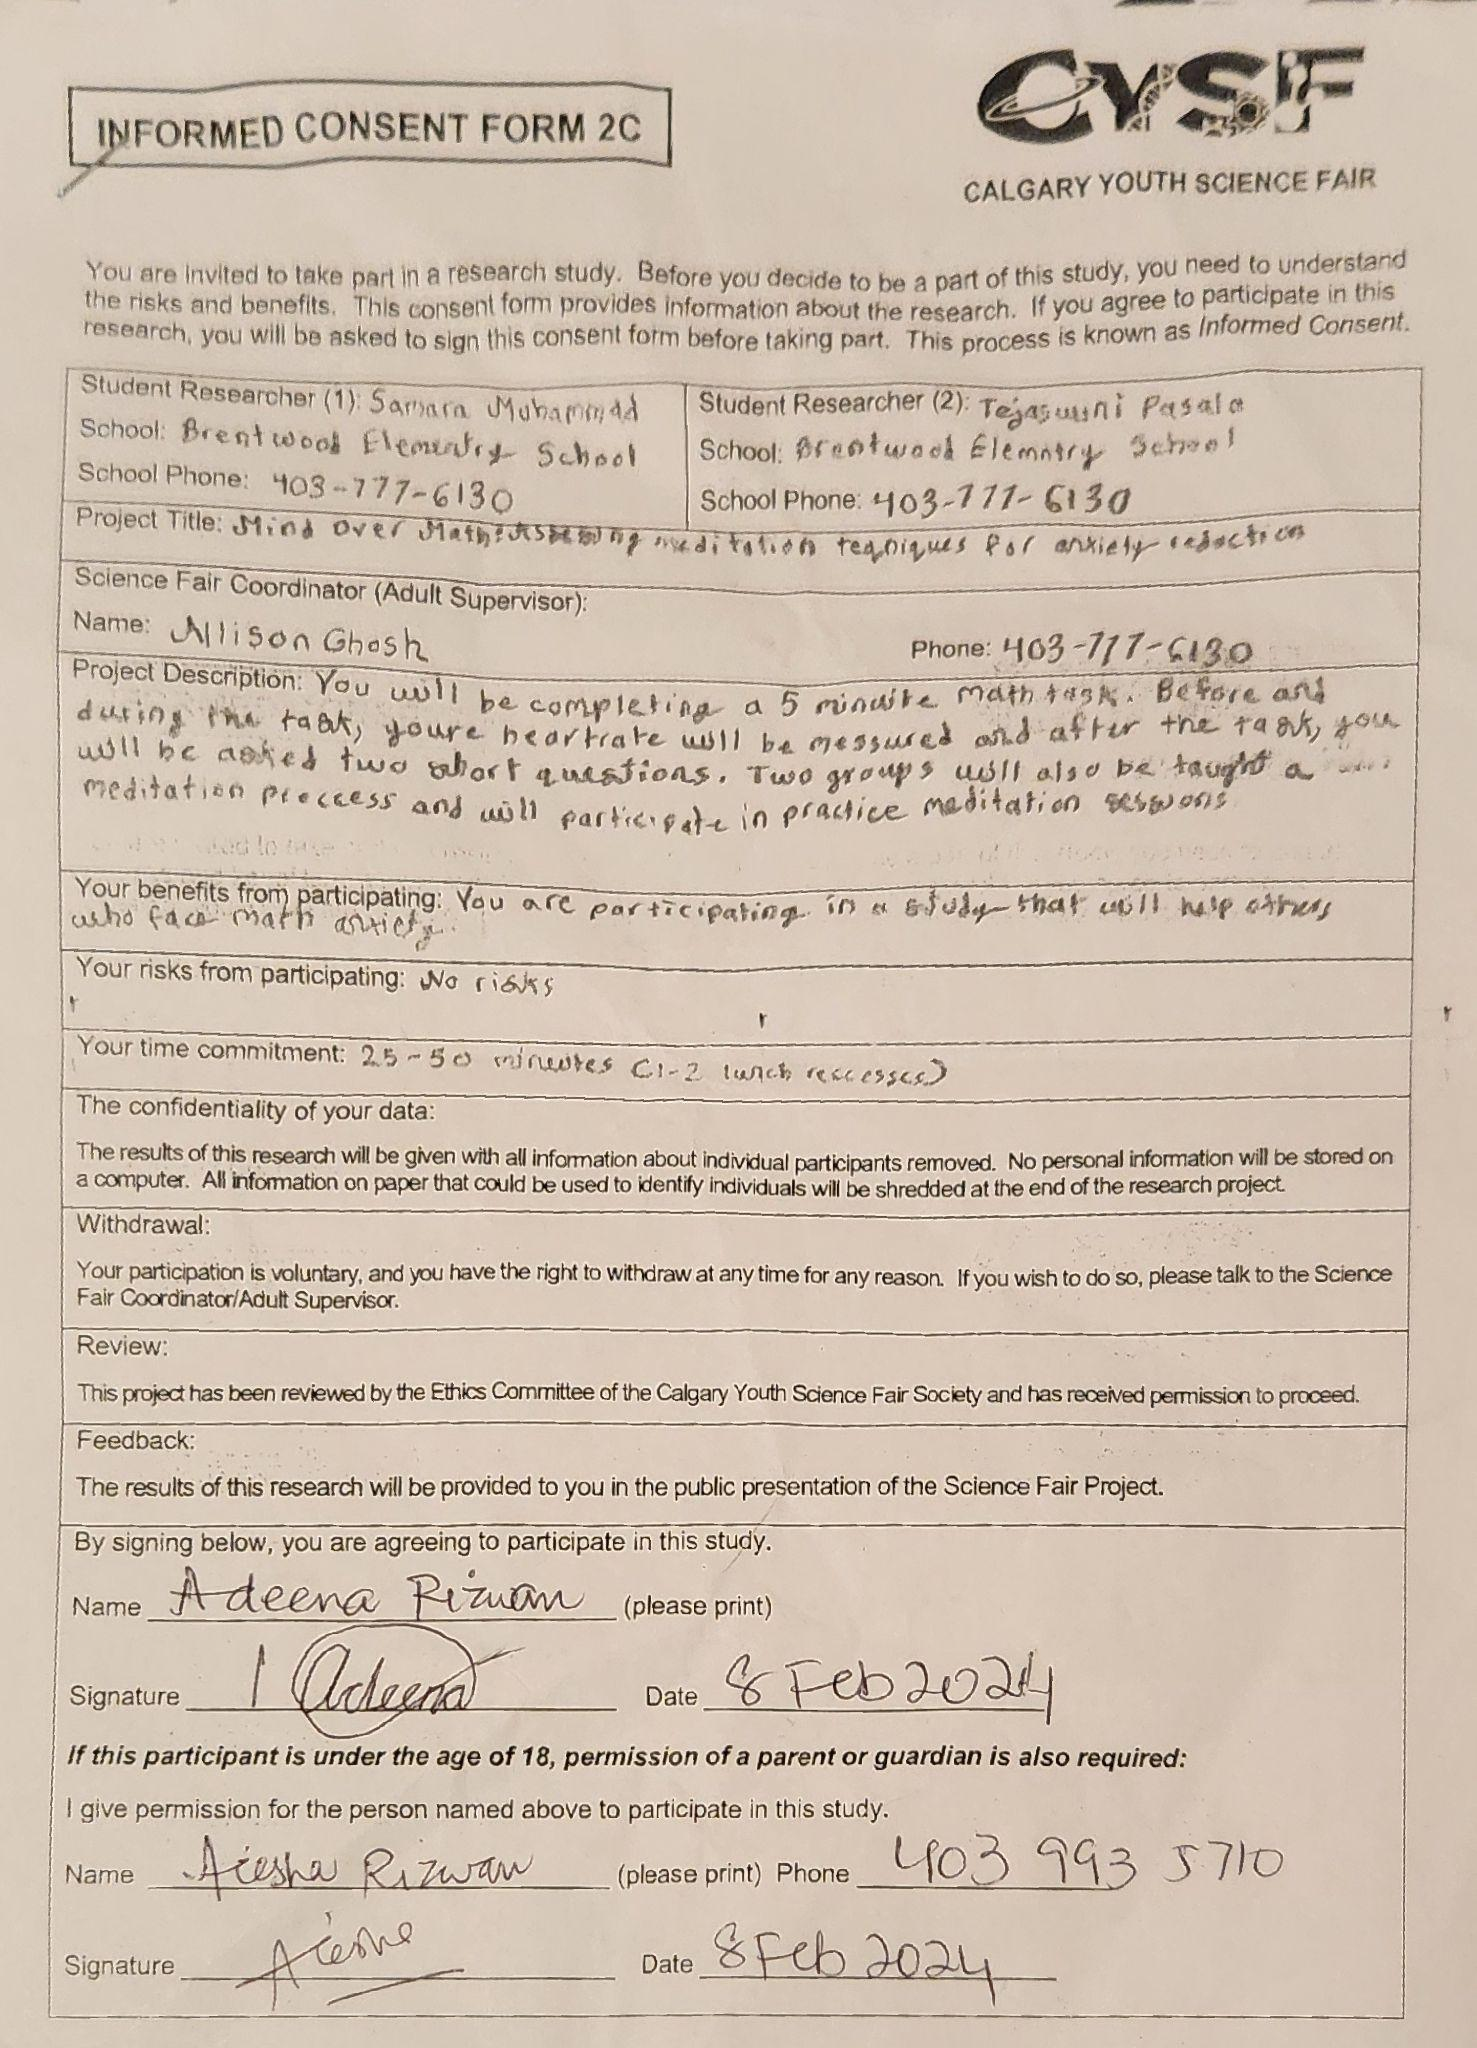 INFORMED CONSENT FORM 2C
CYSF
CALGARY YOUTH SCIENCE FAIR
You are invited to take part in a research study. Before you decide to be a part of this study, you need to understand
the risks and benefits. This consent form provides information about the research. If you agree to participate in this
research, you will be asked to sign this consent form before taking part. This process is known as Informed Consent.
Student Researcher (1): Samara Muhammad
School: Brentwood Elementry School
School Phone: 403-777-6130
Student Researcher (2): Tejaswini Pasala
School: Brentwood Elemntry School
School Phone: 403-777-6130
Project Title: Mind Over Math: Assessing meditation teqniques for anxiety reduction
Science Fair Coordinator (Adult Supervisor):
Name: Allison Ghosh
Phone: 403-777-6130
Project Description: You will be completing a 5 minuite math task. Before and
during the task, youre heartrate will be messured and after the task, you
will be asked two short questions. Two groups will also be taught a
meditation proccess and will participate in practice meditation sessions
Your benefits from participating: You are participating in a study that will help others
who face math anxiety.
Your risks from participating: No risks
Your time commitment: 25-50 minuutes (1-2 lunch reccesses)
The confidentiality of your data:
The results of this research will be given with all information about individual participants removed. No personal information will be stored on
a computer. All information on paper that could be used to identify individuals will be shredded at the end of the research project.
Withdrawal:
Your participation is voluntary, and you have the right to withdraw at any time for any reason. If you wish to do so, please talk to the Science
Fair Coordinator/Adult Supervisor.
Review:
This project has been reviewed by the Ethics Committee of the Calgary Youth Science Fair Society and has received permission to proceed.
Feedback:
The results of this research will be provided to you in the public presentation of the Science Fair Project.
By signing below, you are agreeing to participate in this study.
Name Adeena Rizwan (please print)
Signature Adeena Date 8 Feb 2024
If this participant is under the age of 18, permission of a parent or guardian is also required:
I give permission for the person named above to participate in this study.
Name Aiesha Rizwan (please print) Phone 403 993 5710
Signature Aiesha Date 8 Feb 2024